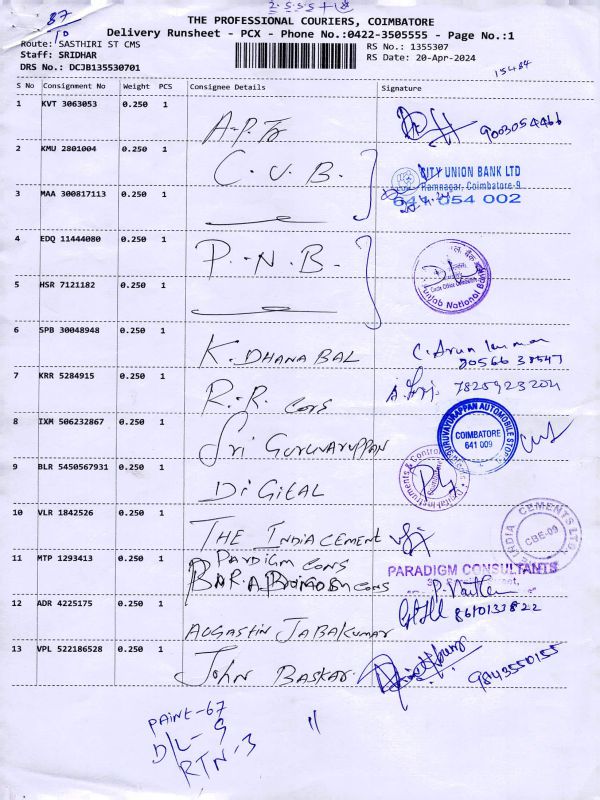 87
TO
2.555+18
THE PROFESSIONAL COURIERS, COIMBATORE
Delivery Runsheet - PCX - Phone No.:0422-3505555 - Page No.:1
Route: SASTHIRI ST CMS
RS No.: 1355307
Staff: SRIDHAR
RS Date: 20-Apr-2024
DRS No.: DCJB135530701
15484
S No Consignment No Weight PCS Consignee Details Signature
1 KVT 3063053 0.250 1 A-P.To 9003054466
2 KMU 2801004 0.250 1 C.U.B. CITY UNION BANK LTD
Ramnagar, Coimbatore-9
3 MAA 300817113 0.250 1 641 054 002
4 EDQ 11444080 0.250 1 P.-N.B.
Punjab National Bank
5 HSR 7121182 0.250 1
6 SPB 30048948 0.250 1 K.DHANABAL C. Arun kumar
80566 38547
7 KRR 5284915 0.250 1 R.R. CONS 7825923204
8 IXM 506232867 0.250 1 Sri GURUVARUPPAN
GURUVAYURAPPAN AUTOMOBILE STOP
COIMBATORE
641 009
9 BLR 5450567931 0.250 1 DiGiTAL
Digital Instruments & Control
10 VLR 1842526 0.250 1 THE INDIACEMENT
THE INDIA CEMENTS LTD.
CBE-09
11 MTP 1293413 0.250 1 PARDIGM CONS
PARADIGM CONSULTANTS
12 ADR 4225175 0.250 1 AUGASTIN JABAKUMAR 8610133822
13 VPL 522186528 0.250 1 JOHN BASKAR 9843550155
PAINT-67
D/L-9
RTN-3